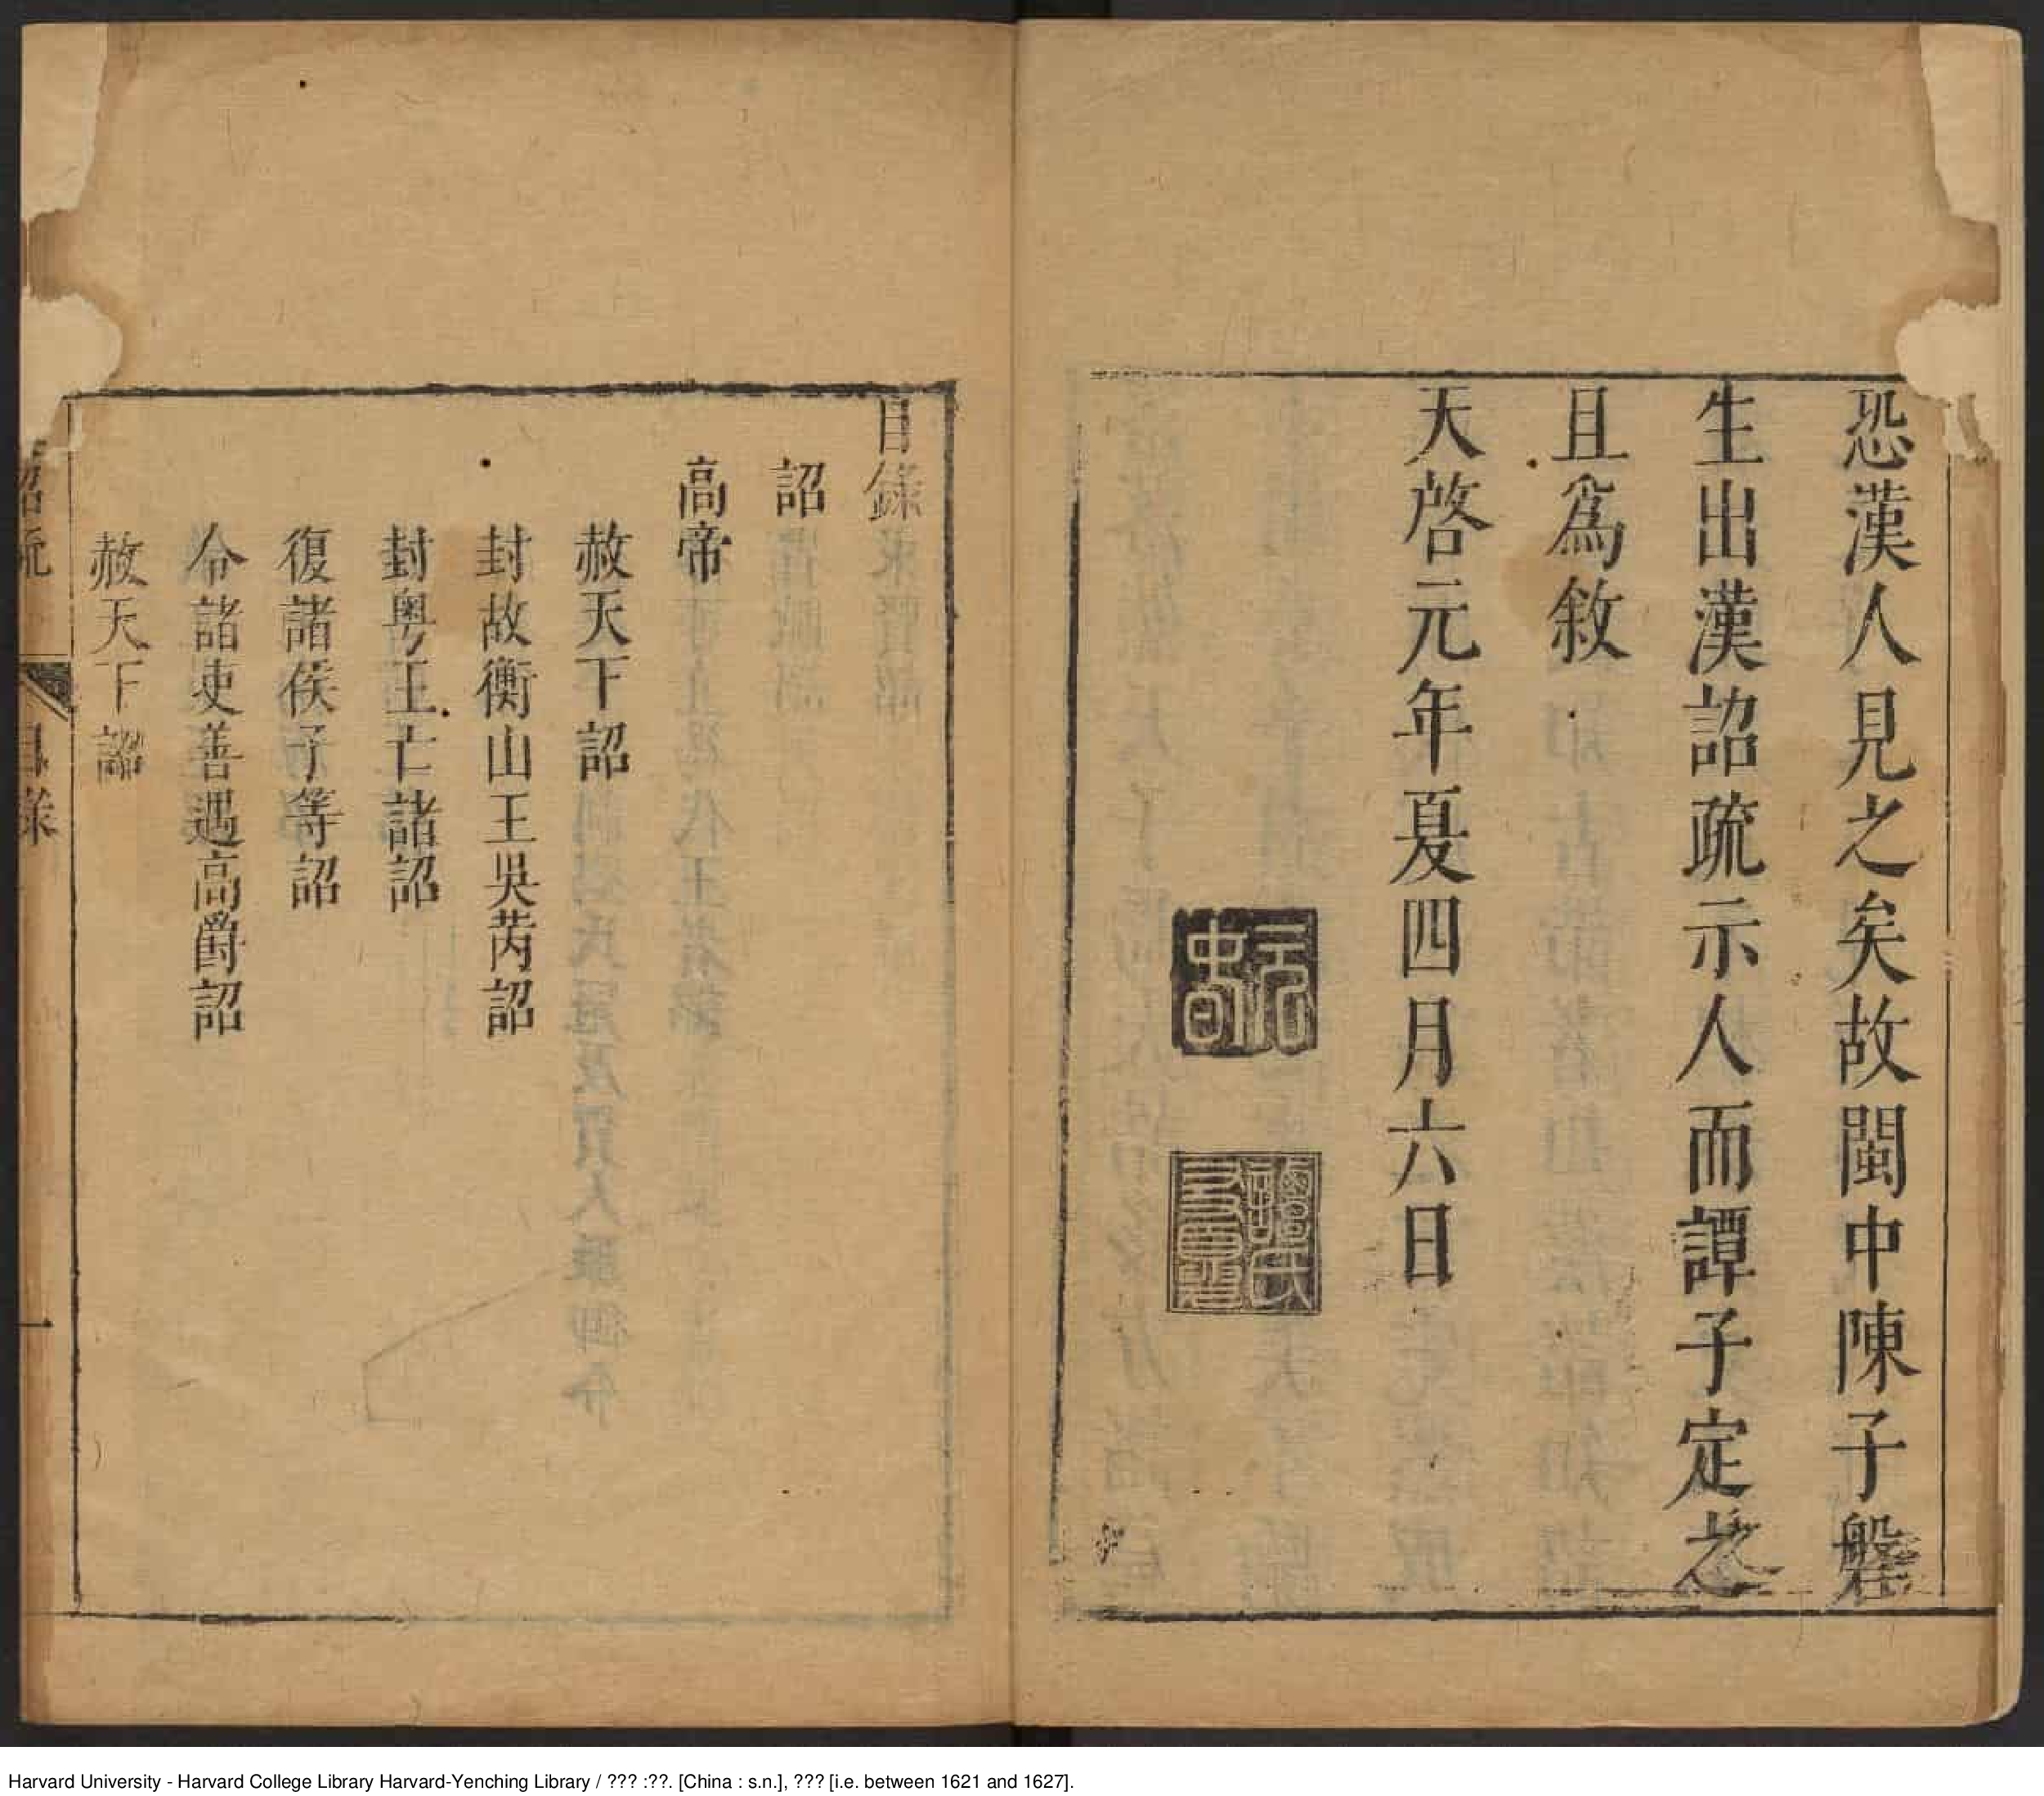 恐漢人見之矣故閩中陳子槃
生出漢詔疏示人而譚子定之
且爲敘
天啓元年夏四月六日
元春
譚氏友夏
目錄
詔
高帝
赦天下詔
封故衡山王吳芮詔
封粤王亡諸詔
復諸侯子等詔
令諸吏善遇高爵詔
赦天下詔
詔疏
目錄
一
Harvard University - Harvard College Library Harvard-Yenching Library / ??? :??. [China : s.n.], ??? [i.e. between 1621 and 1627].